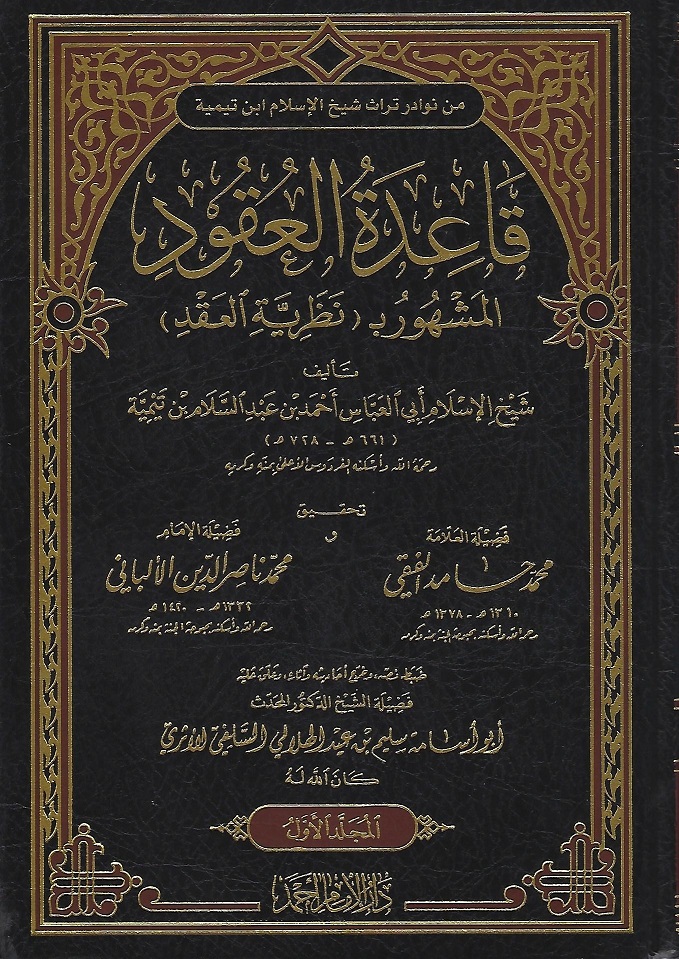 من نوادر تراث شيخ الإسلام ابن تيمية
قَاعِدَةُ العُقُودِ
المَشْهُورُ بـ (نَظَرِيَّةِ العَقْدِ)
تأليف
شَيْخِ الإِسْلَامِ أَبِي العَبَّاسِ أَحْمَدَ بْنِ عَبْدِ السَّلَامِ بْنِ تَيْمِيَّة
(٦٦١ هـ - ٧٢٨ هـ)
رحمه الله وأسكنه الفردوس الأعلى بمنه وكرمه
تحقيق
فَضِيلَة العَلَّامَة
محمّد حامد الفقي
١٣١٠ هـ - ١٣٧٨ هـ
رحمه الله وأسكنه بحبوحة الجنة بمنه وكرمه
و
فَضِيلَة الإِمَام
محمّد ناصر الدّين الألباني
١٣٣٢ هـ - ١٤٢٠ هـ
رحمه الله وأسكنه بحبوحة الجنة بمنه وكرمه
ضبط نصه، وخرج أحاديثه وآثاره، وعلق عليه
فَضِيلَة الشَّيْخ الدكتور المحدث
أبو أسامة سليم بن عيد الهلالي السلفي الأثري
كَانَ اللهُ لَهُ
المُجَلَّد الأَوَّلُ
دَارُ الإِمَامِ أَحْمَد